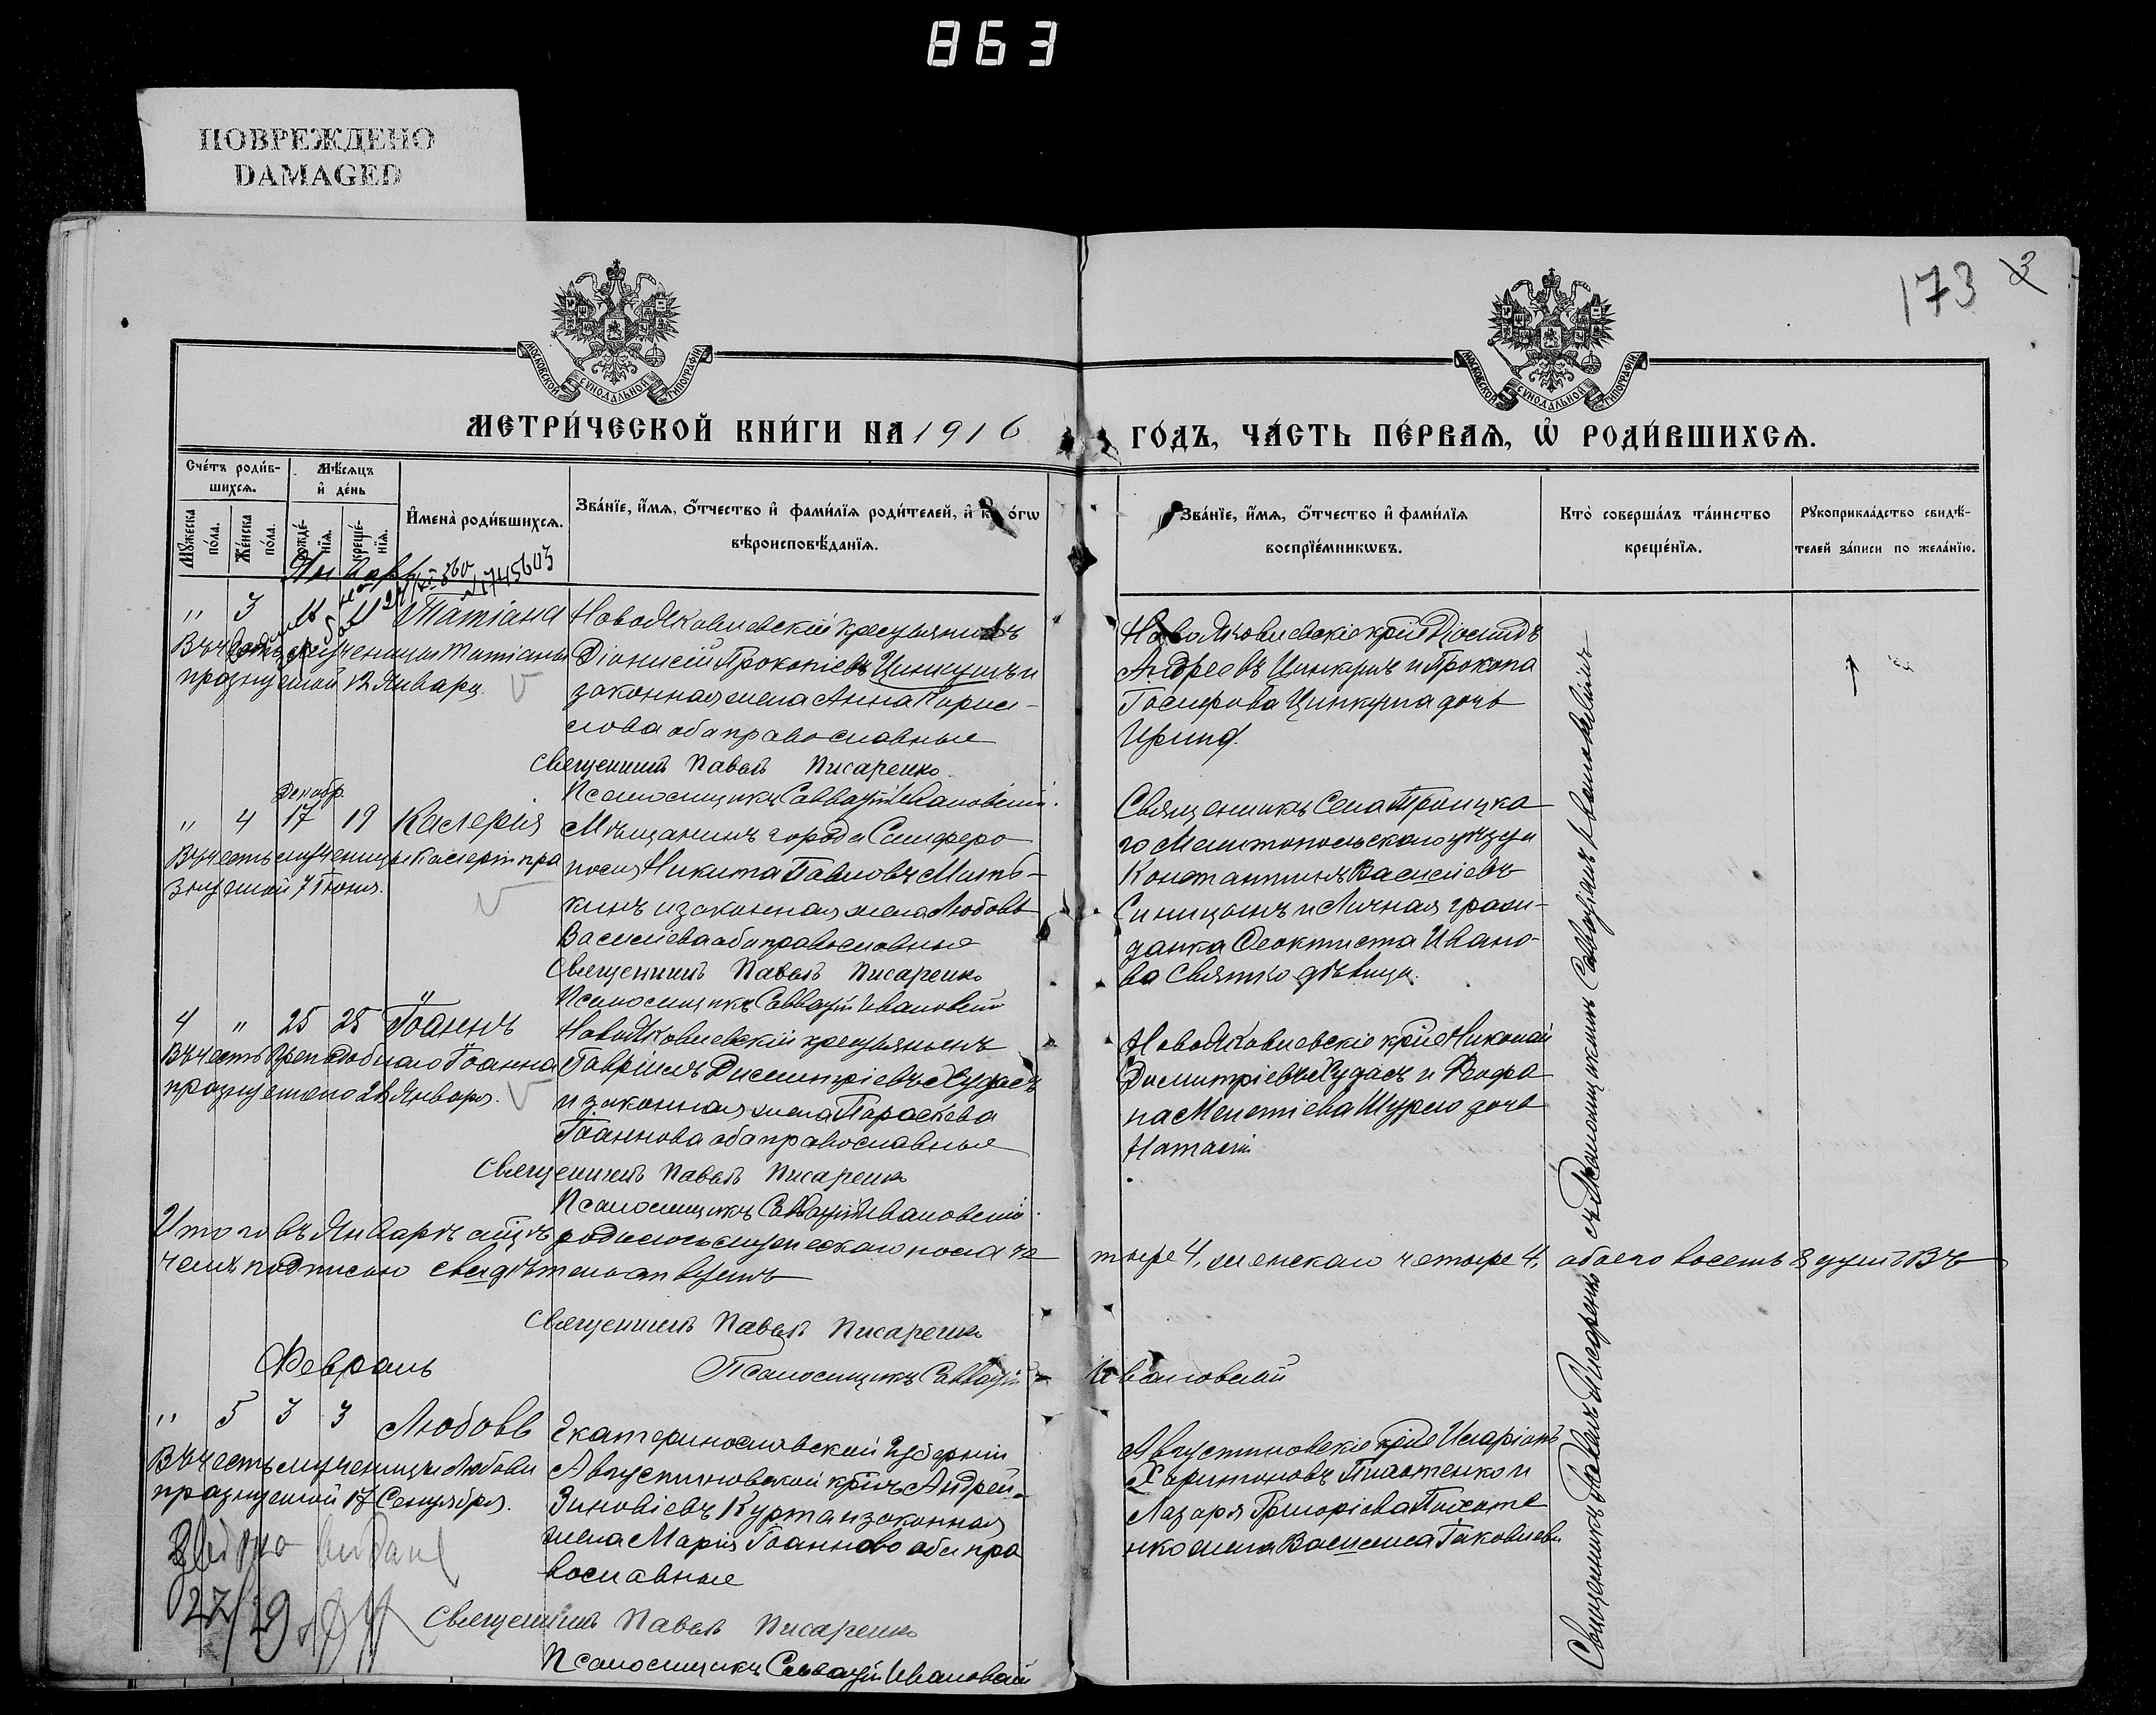 863
ПОВРЕЖДЕНО
DAMAGED
173
3
МОСКОВСКОЙ СѴНОДАЛЬНОЙ ТИПОГРАФІИ
МОСКОВСКОЙ СѴНОДАЛЬНОЙ ТИПОГРАФІИ
МЕТРИ́ЧЕСКОЙ КНИ́ГИ НА 1916 ГО́ДЪ, ЧА́СТЬ ПЕ́РВАѦ, Ѡ҆ РОДИ́ВШИХСѦ.
Сче́тъ роди́в-
шихсѧ.
Мѣ́сѧцъ
и҆ де́нь
Мꙋ́жеска
по́ла.
Же́нска
по́ла.
рожде́-
нїѧ.
креще́-
нїѧ.
И҆мена̀ роди́вшихсѧ.
Зва́нїе, и҆́мѧ, о҆́тчество и҆ фами́лїѧ роди́телей, и҆ к о́гѡ
вѣроисповѣ́данїѧ.
Зва́нїе, и҆́мѧ, о҆́тчество и҆ фами́лїѧ
воспрїе́мникѡвъ.
Кто̀ соверша́лъ та́инство
креще́нїѧ.
Рꙋкоприкла́дство свидѣ́-
телей за́писи по жела́нїю.
Январь
" 3 11 11 Татіана
Въ честь мученицы Татіаны
празнуемой 12 Января.
НовоЯковлевскій крестьянинъ
Діонисій Прокопіевъ Цинкушъ и
законная жена Анна Корни-
лова оба православные
Священникъ Павелъ Писаренко
Псаломщикъ Савватій Ивановскій.
НовоЯковлевскіе кр͠не Діомидъ
Андреевъ Цинкушъ и Прокопа
Іосифова Цинкуша дочь
Ирина.
Декабр.
" 4 17 19 Калерія
Въ честь мученицы Калеріи пра
знуемой 7 Іюня.
Мѣщанинъ города Симферо
поля Никита Павловъ Мить-
кинъ и законная жена Любовь
Василіева оба православные
Священникъ Павелъ Писаренко
Псаломщикъ Савватій Ивановскій
Священникъ Села Троицка
го Мелитопольскаго уѣзда
Константинъ Василіевъ
Синицынъ и Личная граж-
данка Феоктиста Ивано-
ва Святко дѣвица.
4 " 25 25 Іоаннъ
Въ честь Преподобнаго Іоанна
празнуемаго 28 Января.
НовоЯковлевскій крестьянинъ
Гавріилъ Димитріевъ Худасъ
и законная жена Параскева
Іоаннова оба православные
Священникъ Павелъ Писаренко
Псаломщикъ Савватій Ивановскій.
НовоЯковлевскіе кр͠не Николай
Димитріевъ Худасъ и
Мелетіева дочь
Наталія
Итого въ Январѣ м͠цѣ родилось мужескаго пола че тыре 4, женскаго четыре 4, обоего восемь 8 душъ. Въ
чемъ подписью свидѣтельствуемъ
Священникъ Павелъ Писаренко
Псаломщикъ Савватій Ивановскій
Февраль
" 5 3 3 Любовь
Въ честь мученицы Любови
празнуемой 17 Сентября.
27/29
Екатеринославской Губерніи
Августиновской кр͠нъ Андрей
Зиновіевъ Курта и законная
жена Марія Іоаннова оба пра
вославные
Священникъ Павелъ Писаренко
Псаломщикъ Савватій Ивановскій
Августиновскіе кр͠не Иларіонъ
Харитоновъ и
Лазаря Григоріева
нко жена Василиса Іаковлева
Священникъ Павелъ Писаренко съ Псаломщикомъ Савватіемъ Ивановскимъ